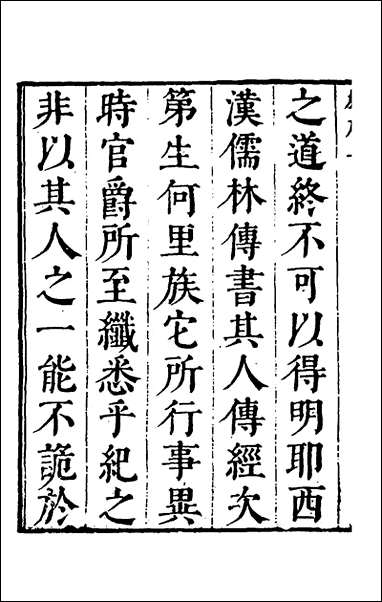 之道終不可以得明耶西
漢儒林傳書其人傳經次
第生何里族它所行事異
時官爵所至纖悉乎紀之
非以其人之一能不詭於